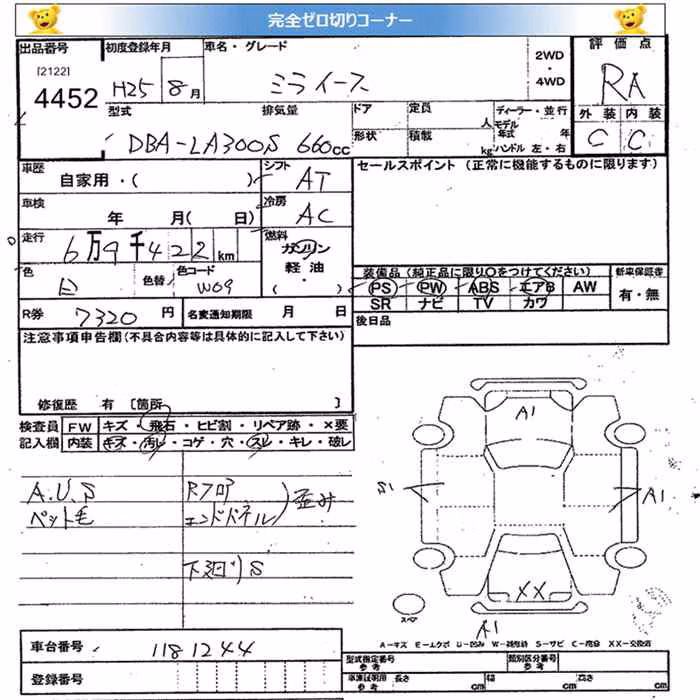 完全ゼロ切りコーナー
出品番号 初度登録年月 車名・グレード 2WD・4WD 評価点
[2122] 4452 H25 8月 ミライース RA
型式 排気量 ドア 定員 人 ディーラー・並行 外装 内装
DBA-LA300S 660cc 形状 積載 kg モデル年式 年 ハンドル 左・右 C C
車歴 自家用・( ) シフト AT セールスポイント (正常に機能するものに限ります)
車検 年 月( 日) 冷房 AC
走行 6万9千422km 燃料 ガソリン
色 白 色替 色コード W09 軽油・( )
装備品 (純正品に限り○をつけてください) 新車保証書
PS PW ABS エアB AW 有・無
SR ナビ TV カワ
R券 7320円 名変通知期限 月 日 後日品
注意事項申告欄 (不具合内容等は具体的に記入して下さい)
修復歴 有 [箇所 ]
検査員 FW キズ・飛石・ヒビ割・リペア跡・×要
記入欄 内装 キズ・汚レ・コゲ・穴・スレ・キレ・破レ
A.U.S Rフロア
ペット毛 エンドパネル )歪み
下廻りS
A1
S1 A1
XX
スペア A1
A-キズ E-エクボ U-凹み W-補修跡 S-サビ C-腐食 XX-交換済
車台番号 1181244 型式指定番号 参考 類別区分番号 参考
登録番号 車検証明用 参考 長さ cm 幅 cm 高さ cm